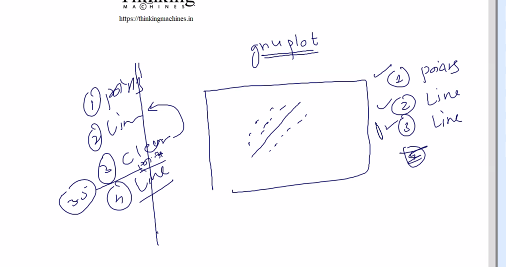 Thinking
MACHINES
https://thinkingmachines.in
gnuplot
① points
② Line
③ Clear
④ Line
① points
② Line
③ Line
④